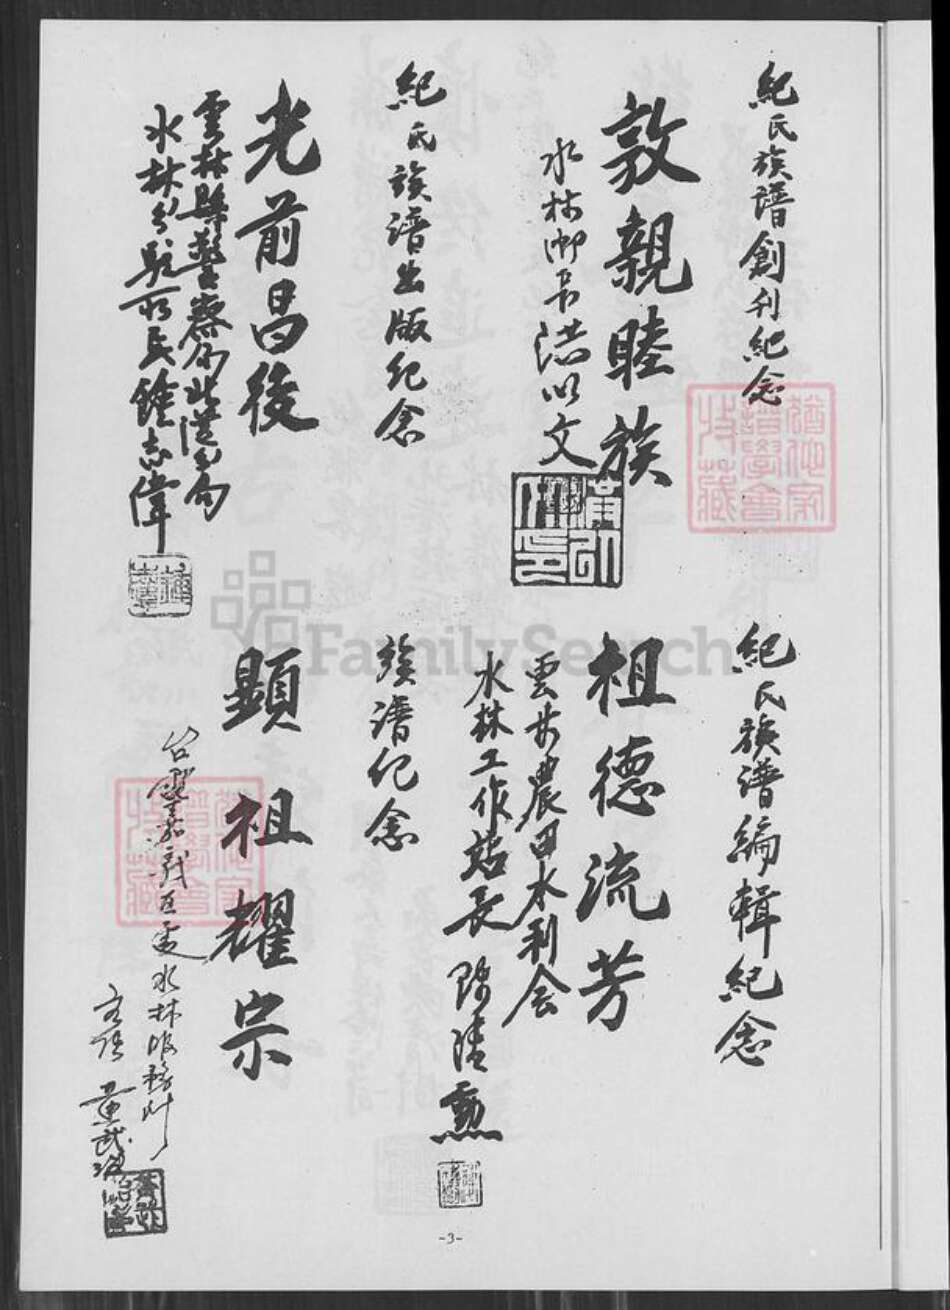 紀氏族譜創刊紀念
敦親睦族
水林鄉長洪以文
紀氏族譜出版紀念
光前昌後
雲林縣警察局北港分局
水林分駐所所長鍾志偉
紀氏族譜編輯紀念
祖德流芳
雲林農田水利會
水林工作站長 陳清勳
族譜紀念
顯祖耀宗
水林服務
-3-
FamilySearch